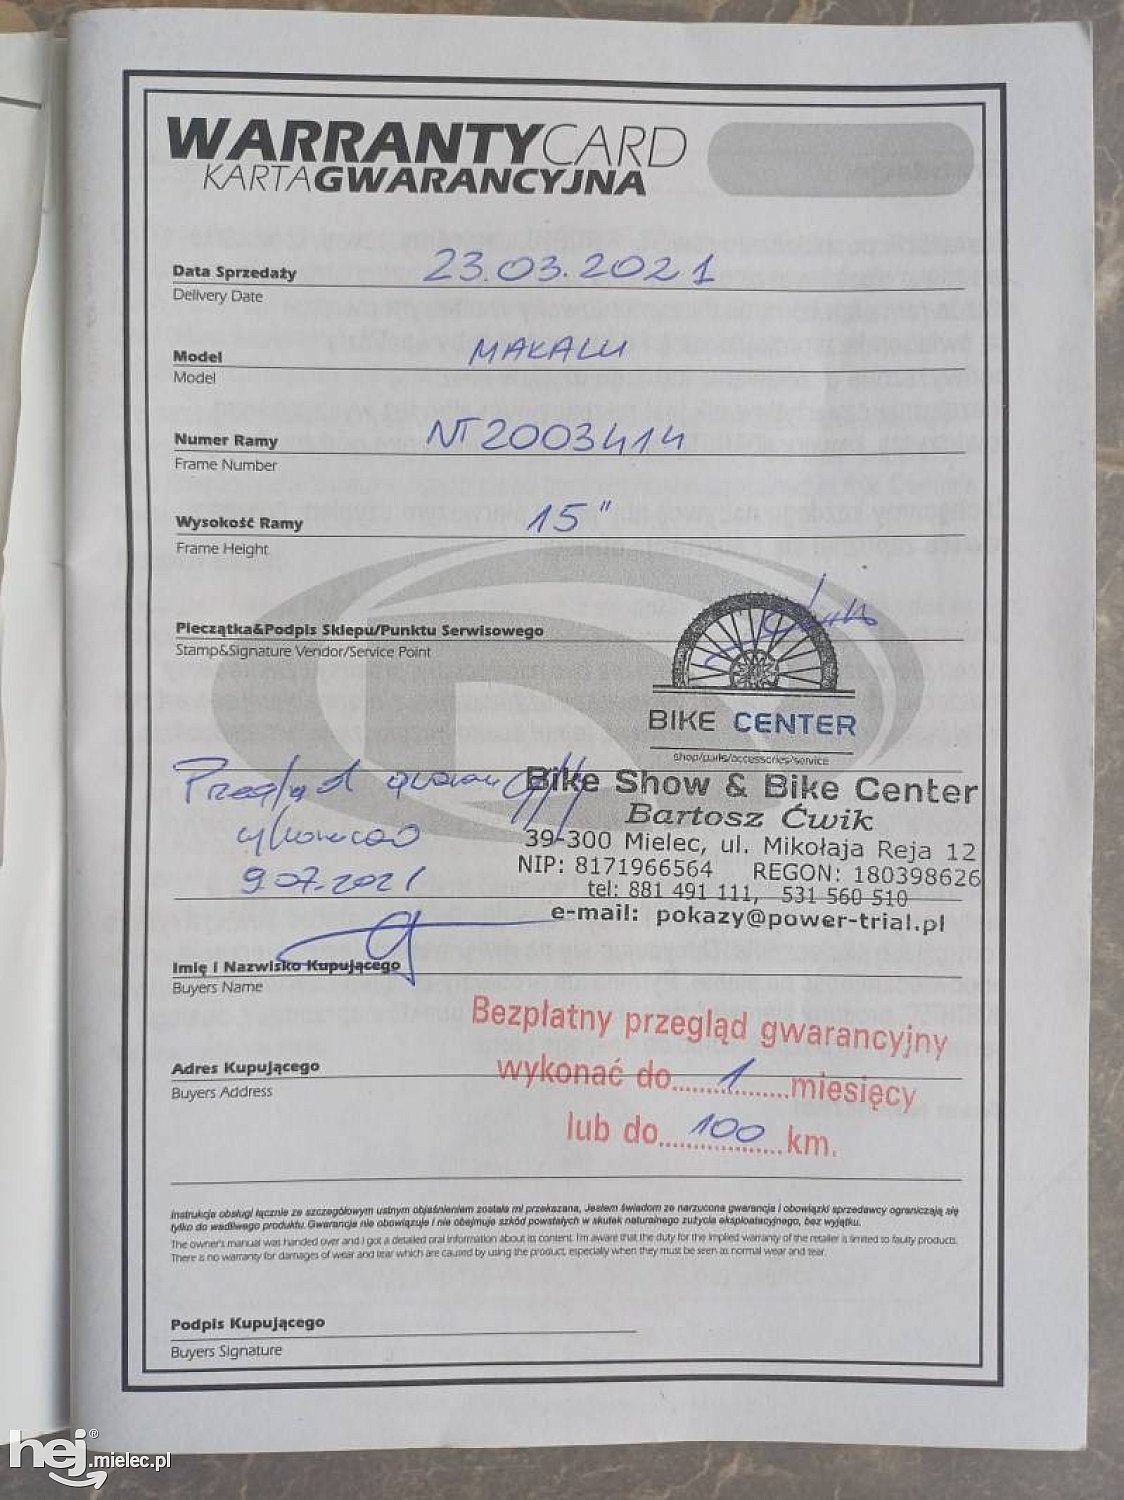 WARRANTYCARD
KARTAGWARANCYJNA
Data Sprzedaży 23.03.2021
Delivery Date
Model MAKALU
Model
Numer Ramy NT2003414
Frame Number
Wysokość Ramy 15"
Frame Height
Pieczątka&Podpis Sklepu/Punktu Serwisowego
Stamp&Signature Vendor/Service Point
BIKE CENTER
shop/parts/accessories/service
Przegląd
Bike Show & Bike Center
Bartosz Ćwik
39-300 Mielec, ul. Mikołaja Reja 12
NIP: 8171966564 REGON: 180398626
9.07.2021
tel: 881 491 111, 531 560 510
e-mail: pokazy@power-trial.pl
Imię i Nazwisko Kupującego
Buyers Name
Bezpłatny przegląd gwarancyjny
wykonać do....1....miesięcy
Adres Kupującego
Buyers Address
lub do....100....km.
Instrukcja obsługi łącznie ze szczegółowym ustnym objaśnieniem została mi przekazana, Jestem świadom że narzucona gwarancja i obowiązki sprzedawcy ograniczają się
tylko do wadliwego produktu. Gwarancja nie obowiązuje i nie obejmuje szkód powstałych w skutek naturalnego zużycia eksploatacyjnego, bez wyjątku.
The owner's manual was handed over and I got a detailed oral information about its content. I'm aware that the duty for the implied warranty of the retailer is limited to faulty products.
There is no warranty for damages of wear and tear which are caused by using the product, especially when they must be seen as normal wear and tear.
Podpis Kupującego
Buyers Signature
hej®.mielec.pl